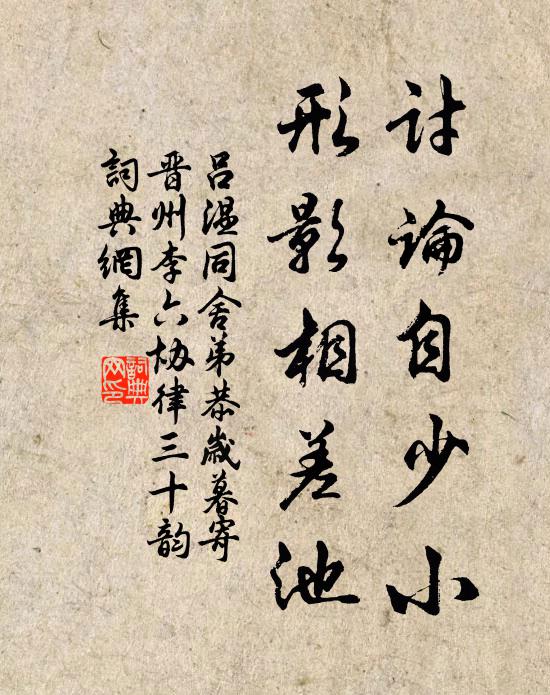 討論自少小
形影相差池
吕温同舍弟恭歲暮寄
晋州李六协律三十韵
詞典網集
詞典
网印